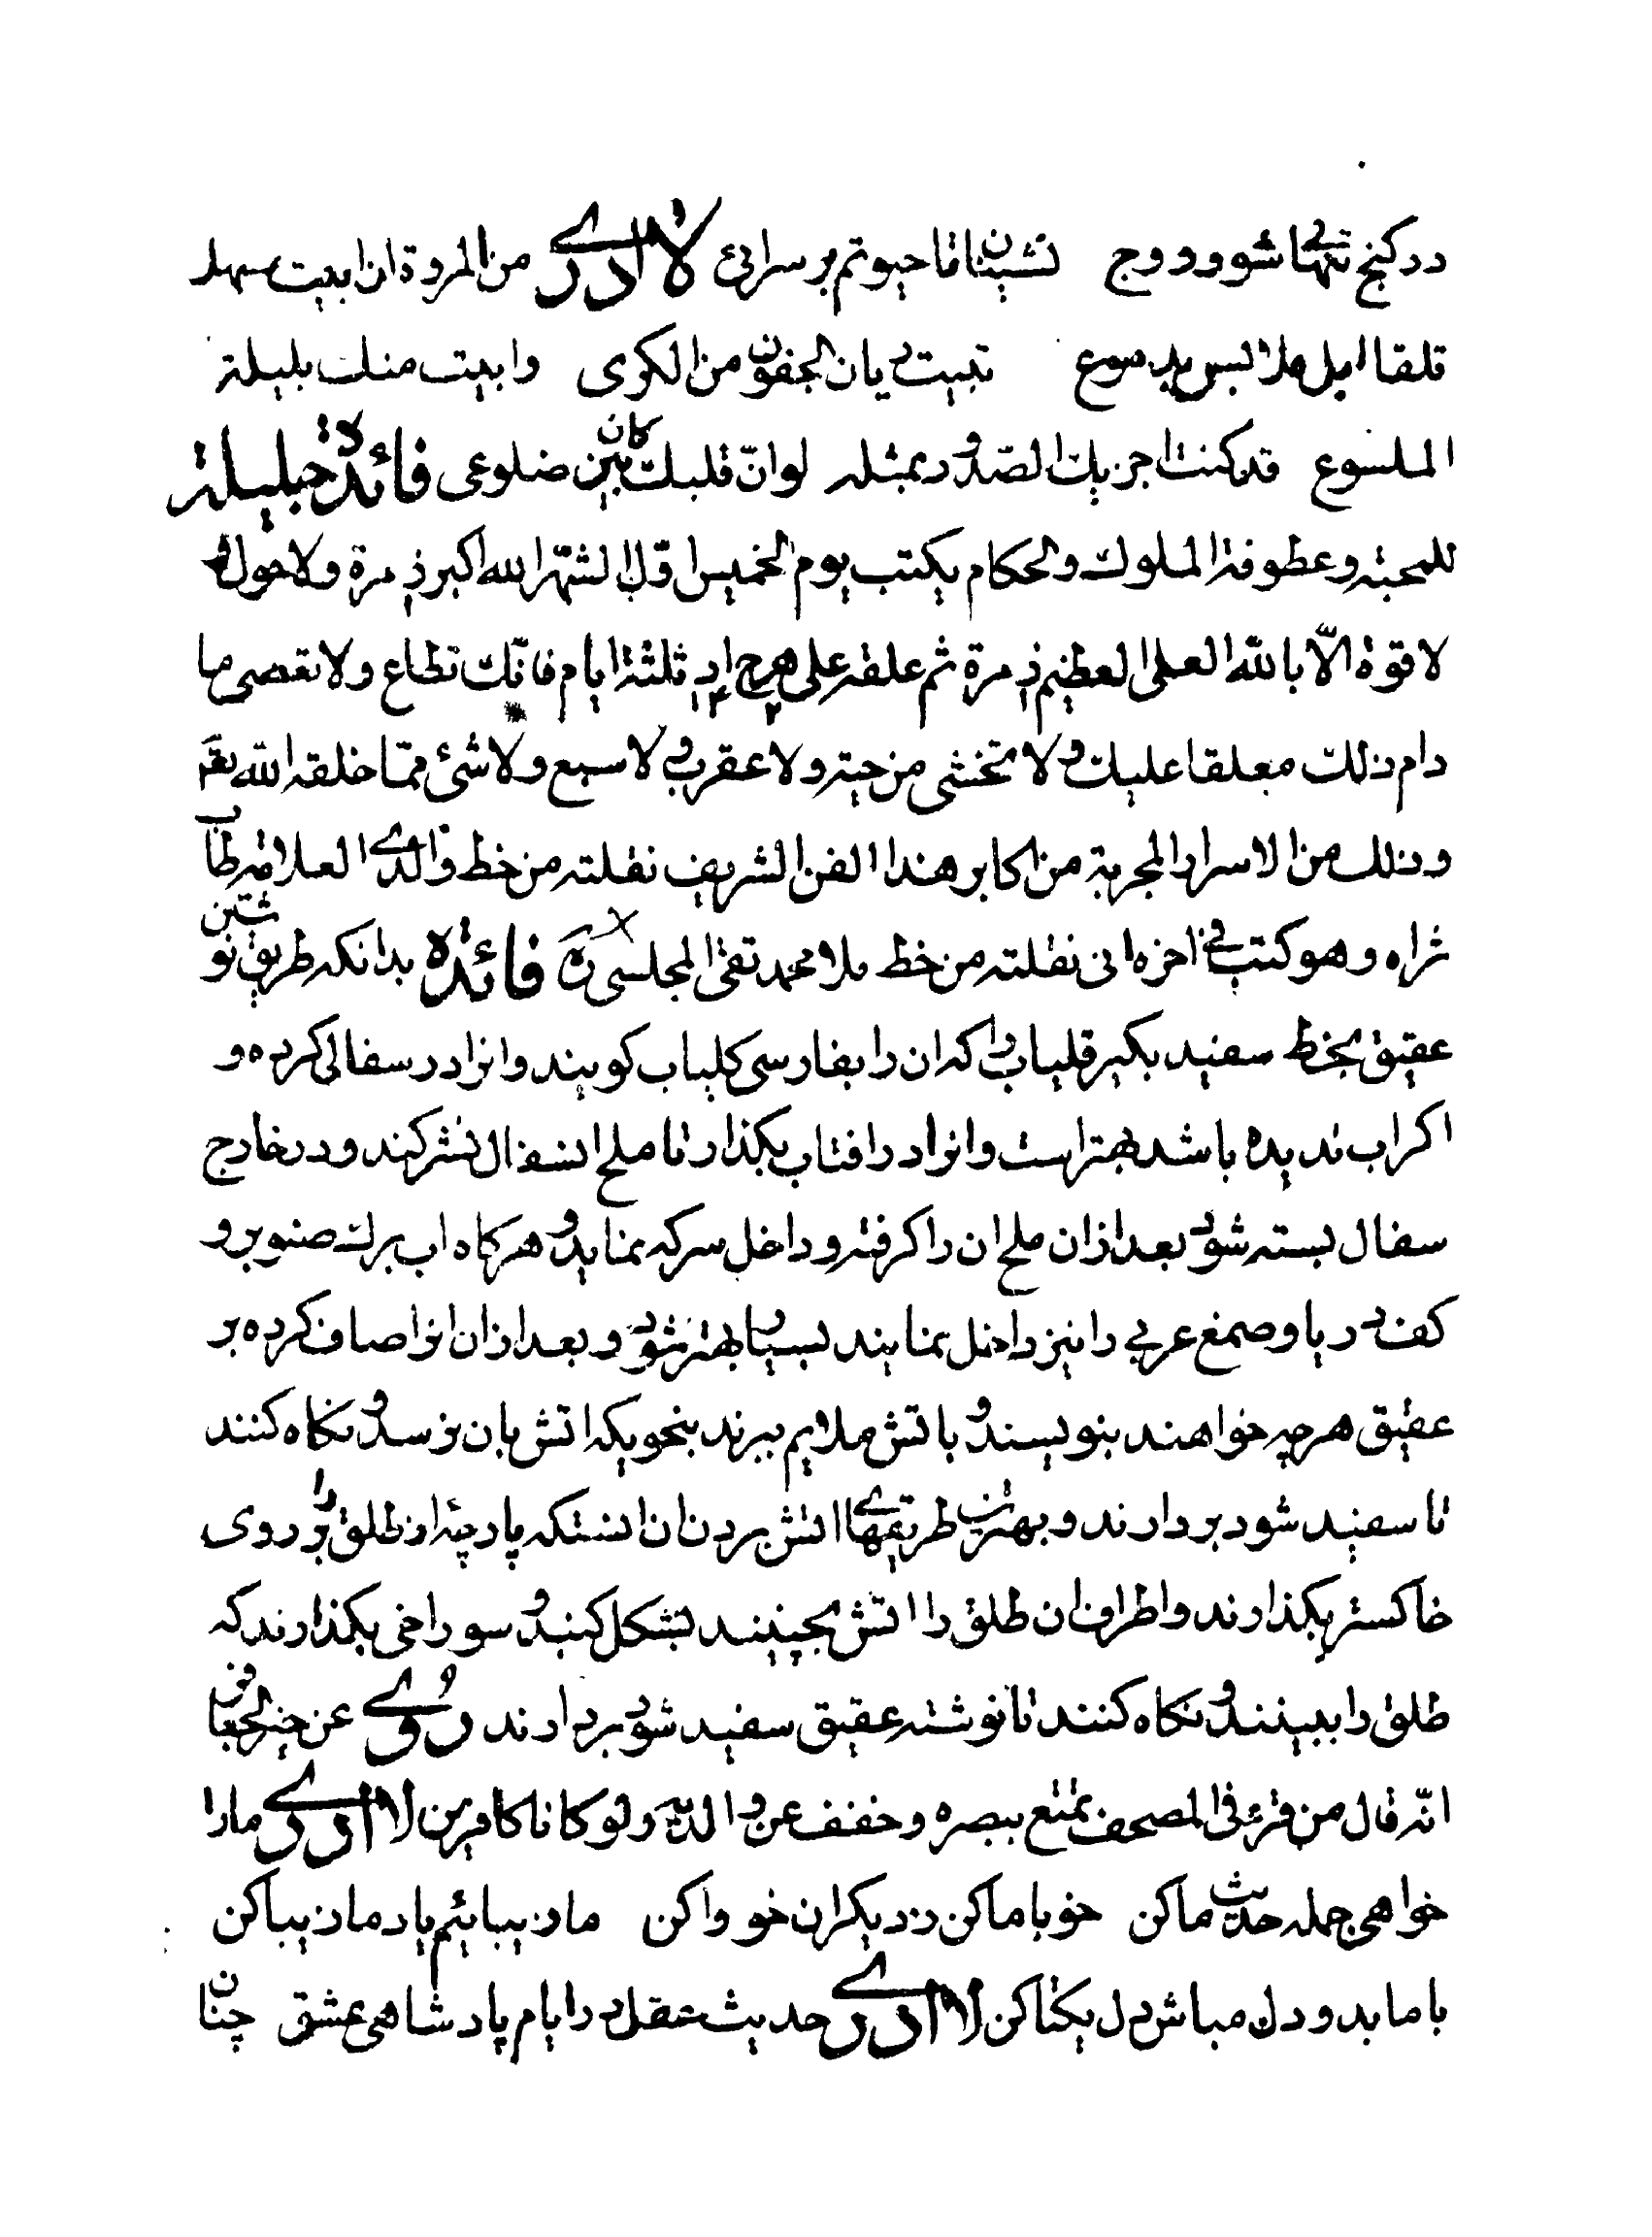 در کنج تنهائی شو و دوج نشین تا تا حیوتم بر سرائی لا ادری من المروة ان ابیت مسهد
قلقا ابل ملابس بدموع تبیت ریان الجفون من الکری وابیت منك بلیلة
الملسوع قد کنت اجزیك الصدود بمثله لو انّ قلبك کان بین ضلوعی فائدة جلیلة
للمحبة وعطوفة الملوك والحکام یکتب یوم الخمیس اوّل الشهر الله اکبر مرة ولا حول و
لا قوة الّا بالله العلی العظیم مرة ثم علقه علی ثلثة ایام فانّك تطاع ولا تعصی ما
دام ذلك معلقا علیك ولا تخشی من حیة ولا عقرب ولا سبع ولا شئ ممّا خلقه الله تعـ
وذلك من الاسرار المجربة من اکابر هذا الفن الشریف نقلته من خط والدی العلامة طاب
ثراه وهو کتب فی اخره انی نقلته من خط ملا محمد تقی المجلسی ره فائدة بدانکه طریق نوشتن
عقیق بخط سفید بکیر قلیاب را که ان را بفارسی کلیاب کویند وانرا در سفالی کرده و
اکر اب ندیده باشد بهتر است وانرا در افتاب بکذار تا ملح از سفال نشر کند ودر خارج
سفال بسته شود بعد از ان ملح ان را کرفته و داخل سرکه نماید و هرکاه اب برك صنوبر و
کف دریا وصمغ عربی را نیز داخل نمایند بسیار بهتر شود و بعد از ان انرا صاف کرده بر
عقیق هرچه خواهند بنویسند و باتش ملایم ببرند بنحویکه اتش بان نرسد و نکاه کنند
تا سفید شود بردارند و بهترین طریقهای اتش بردن ان انستکه پارچۀ از طلق را بر روی
خاکستر بکذارند واطراف ان طلق را اتش بچینند بشکل کنبد و سوراخی بکذارند که
طلق را ببینند و نکاه کنند تا نوشته عقیق سفید شود بردارند روی عن جعفر
انّه قال من قرء فی المصحف تمتع ببصره وخفف عن والدیه ولو کانا کافرین لا ادری مارا
خواهی جمله حدیث ما کن خو با ما کن ز دیکران خو واکن ما زیبائیم یاد ما زیبا کن
با ما بدو دل مباش دل یکتا کن لا ادری حدیث عقل در ایام پادشاهی عشق چنان